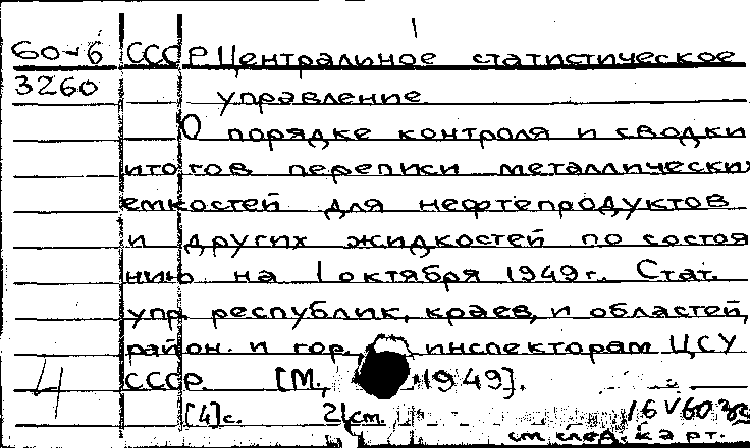 60-6 СССР. Центральное статистическое
3260 управление.
О порядке контроля и сводки
итогов переписи металлических
емкостей для нефтепродуктов
и других жидкостей по состоя
нию на 1 октября 1949 г. Стат.
упр. республик, краев, и областей,
район. и гор. инспекторам ЦСУ
4 СССР. [М., 1949].
[4]с. 21см. 16 V 60
см. след. карт.